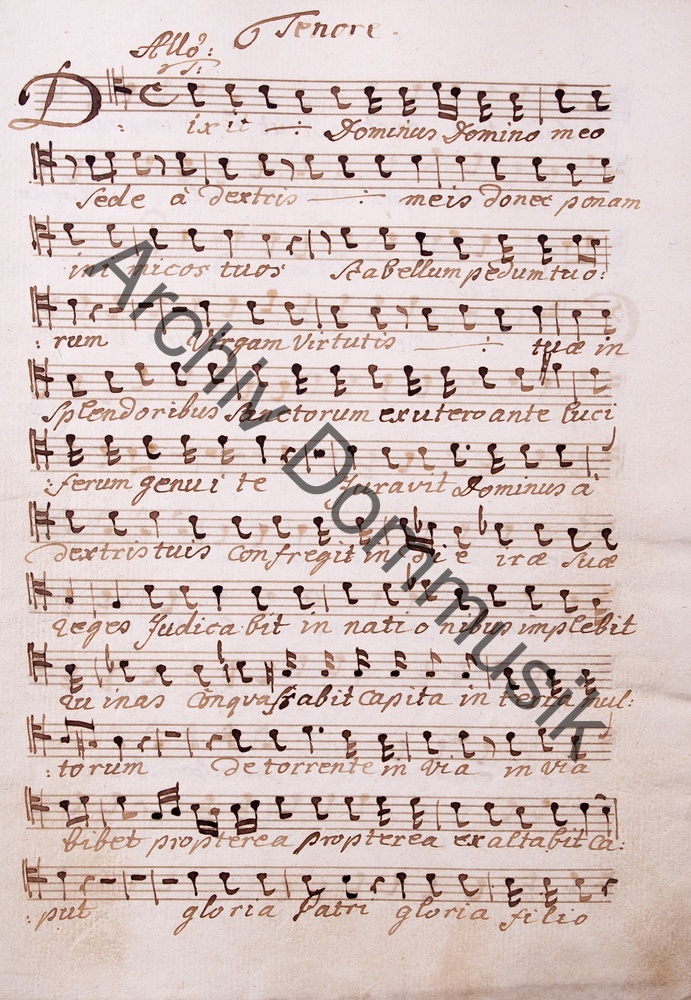 Tenore.
Allo:
T:
Dixit —: Dominus Domino meo
Sede à dextris —: meis donec ponam
inimicos tuos Scabellum pedum tuo:
:rum Virgam Virtutis —: tuæ in
Splendoribus Sanctorum ex utero ante luci
:ferum genui te Juravit Dominus à
dextris tuis Confregit in die iræ suæ
reges Judicabit in nationibus implebit
ruinas Conquassabit Capita in terra mul:
:torum De torrente in via in via
bibet propterea propterea exaltabit Ca:
:put gloria Patri gloria filio
Archiv Dommusik